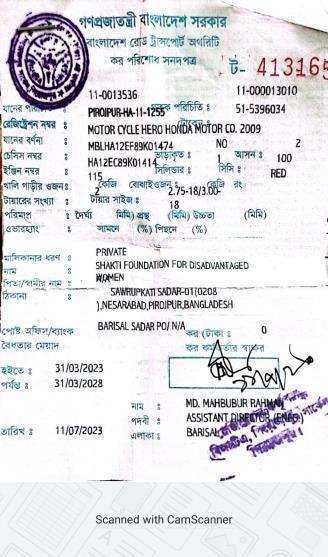 গণপ্রজাতন্ত্রী বাংলাদেশ সরকার
বাংলাদেশ রোড ট্রান্সপোর্ট অথরিটি
কর পরিশোধ সনদপত্র
ট- 413165
11-0013536 11-000013010
PIROJPUR-HA-11-1255 পরিচিতি : 51-5396034
রেজিষ্ট্রেশন নম্বর :
MOTOR CYCLE HERO HONDA MOTOR CO. 2009
যানের বর্ণনা : MBLHA12EF89K01474 NO 2
চেসিস নম্বর : HA12EC89K01414 ভাড়াকৃত : 1 আসন : 100
ইঞ্জিন নম্বর : 115 সিলিন্ডার : সিসি : RED
খালি গাড়ীর ওজন : কেজি বোঝাইওজন : কেজি রং
টায়ারের সংখ্যা : 2 টায়ার সাইজ : 2.75-18/3.00-18
পরিমাপ : দৈর্ঘ্য (মিমি) প্রস্থ (মিমি) উচ্চতা (মিমি)
ওভারহ্যাং : সামনে (%) পিছনে (%)
মালিকানার ধরণ : PRIVATE
নাম : SHAKTI FOUNDATION FOR DISADVANTAGED WOMEN
পিতা/স্বামীর নাম :
ঠিকানা : SAWRUPKATI SADAR-01(0208
),NESARABAD,PIROJPUR,BANGLADESH
পোষ্ট অফিস/ব্যাংক BARISAL SADAR PO/ N/A কর (টাকা : 0
বৈধতার মেয়াদ কর কর্মকর্তার স্বাক্ষর
হইতে : 31/03/2023
পর্যন্ত : 31/03/2028
নাম : MD. MAHBUBUR RAHMAN
পদবী : ASSISTANT DIRECTOR (ENGG.)
তারিখ : 11/07/2023 এলাকা : BARISAL
Scanned with CamScanner